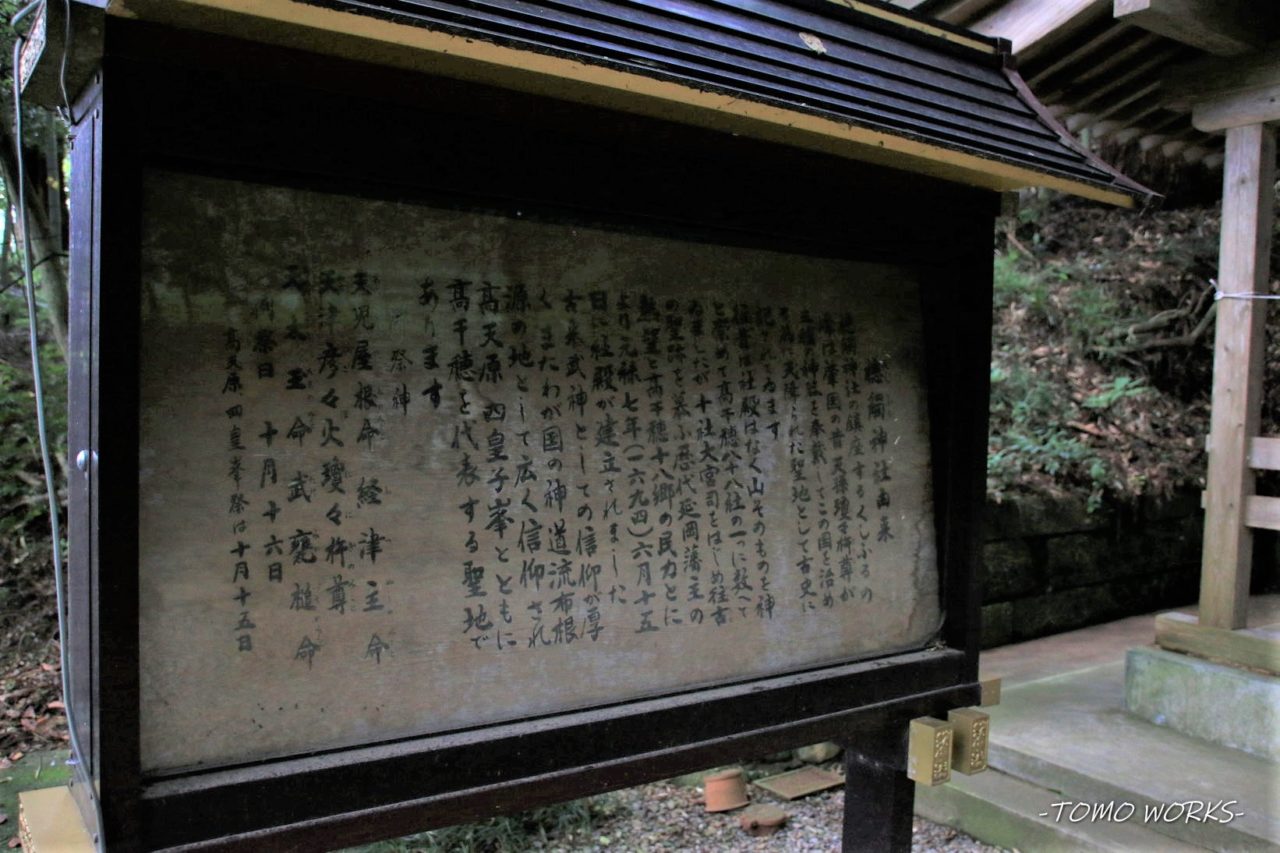 槵觸神社由来
槵觸神社の鎮座するくしふるの
峰は肇国の昔天孫瓊々杵尊が
三種の神社を奉戴してこの国を治め
る為に天降られた聖地として古史に
記されてゐます
往昔は社殿はなく山そのものを神
と崇めて高千穂八十八社の一つに数へて
ゐましたが十社大宮司をはじめ往古
の聖跡を慕ふ歴代延岡藩主の
熱望と高千穂十八郷の民力とに
より元禄七年(一六九四)六月十五
日に社殿が建立されました
古来武神としての信仰が厚
くまたわが国の神道流布根
源の地として広く信仰され
高天原 四皇子峯とともに
高千穂を代表する聖地で
あります
祭神
天児屋根命 経津主命
天津彦々火瓊々杵尊
天太玉命 武甕槌命
例祭日 十月十六日
高天原 四皇峯祭は十月十五日
-TOMO WORKS-